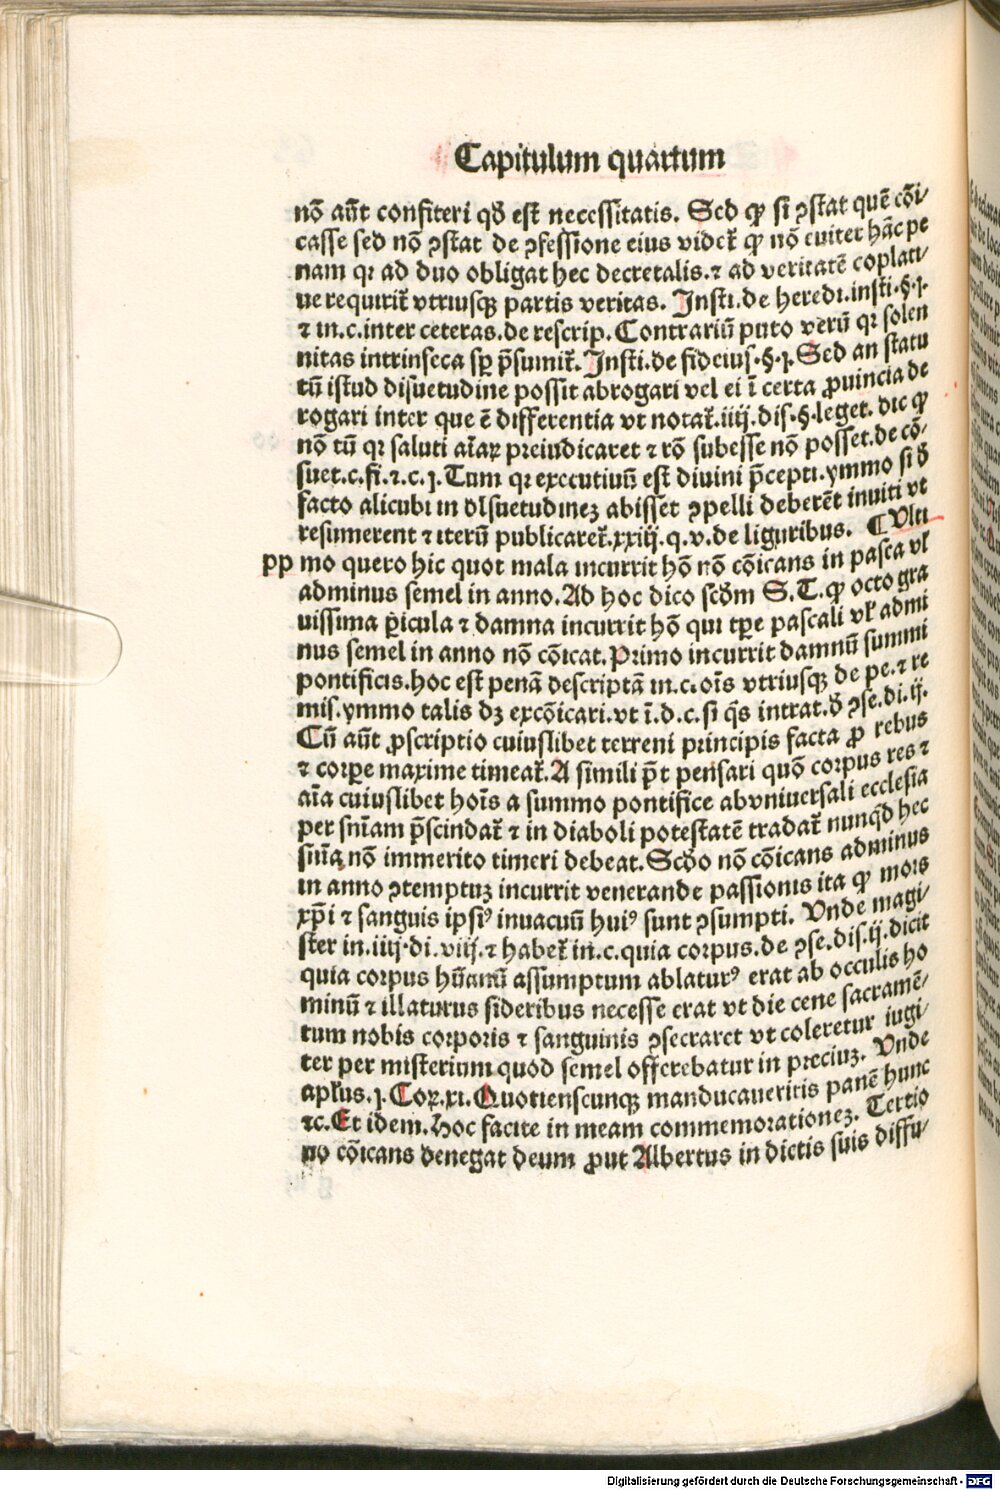 Capitulum quartum
nō aūt confiteri qđ est necessitatis. Sed ꝙ si ꝯstat quē cōi⸗
casse sed nō ꝯstat de ꝯfessione eius videt̄ ꝙ nō euiter hāc pe
nam qꝛ ad duo obligat hec decretalis.⁊ ad veritatē coplati⸗
ue requirit̄ vtriusqꝫ partis veritas. Insti.de heredi.insti.§.j.
⁊ in.c.inter ceteras.de rescrip.Contrariū puto verū qꝛ solen
nitas intrinseca sꝑ p̄sumit̄. Insti.de fideius.§.j.Sed an statu
tū istud disuetudine possit abrogari vel ei ī certa ꝓuincia de
rogari inter que ē differentia vt notat̄.iiij.dis.§.leget. dic ꝙ
nō tū qꝛ saluti aīaꝝ preiudicaret ⁊ rō subesse nō posset.de cō⸗
suet.c.fi.⁊.c.j.Tum qꝛ executiuū est diuini p̄cepti.ymmo si đ
facto alicubi in dissuetudineꝫ abisset ꝯpelli deberēt inuiti vt
resumerent ⁊ iterū publicaret̄.xxiij.q.v.de liguribus. ¶ Vlti
pp mo quero hic quot mala incurrit hō nō cōicans in pasca vl̓
adminus semel in anno.Ad hoc dico scđm S.T.ꝙ octo gra
uissima ꝑicula ⁊ damna incurrit hō qui tꝑe pascali vl̓ admi
nus semel in anno nō cōicat.Primo incurrit damnū summi
pontificis.hoc est penā descriptā in.c.oīs vtriusqꝫ de pe.⁊ re
mis.ymmo talis dꝫ excōicari.vt ī.d.c.si q̄s intrat.đ ꝯse.di.ij.
Cū aūt ꝓscriptio cuiuslibet terreni principis facta ꝓ rebus
⁊ corꝑe maxime timeat̄.A simili p̄t pensari quō corpus res ⁊
aīa cuiuslibet hoīs a summo pontifice abvniuersali ecclesia
per snīam p̄scindat̄ ⁊ in diaboli potestatē tradat̄ nunqđ hec
snīa nō immerito timeri debeat.Scđo nō cōicans adminus
in anno ꝯtemptuꝫ incurrit venerande passionis ita ꝙ mors
xp̄i ⁊ sanguis ipsiꝰ inuacuū huiꝰ sunt ꝯsumpti. Vnde magi⸗
ster in.iiij.di.viij.⁊ habet̄ in.c.quia corpus.de ꝯse.dis.ij.dicit
quia corpus hūanū assumptum ablaturꝰ erat ab occulis ho
minū ⁊ illaturus sideribus necesse erat vt die cene sacramē⸗
tum nobis corporis ⁊ sanguinis ꝯsecraret vt coleretur iugi⸗
ter per misterium quod semel offerebatur in preciuꝫ. Vnde
apl̓us.j.Coꝝ.xi.Quotienscunqꝫ manducaueritis panē hunc
⁊c.Et idem.Hoc facite in meam commemorationeꝫ. Tertio
no cōicans denegat deum ꝓut Albertus in dictis suis diffu⸗
Digitalisierung gefördert durch die Deutsche Forschungsgemeinschaft - DFG